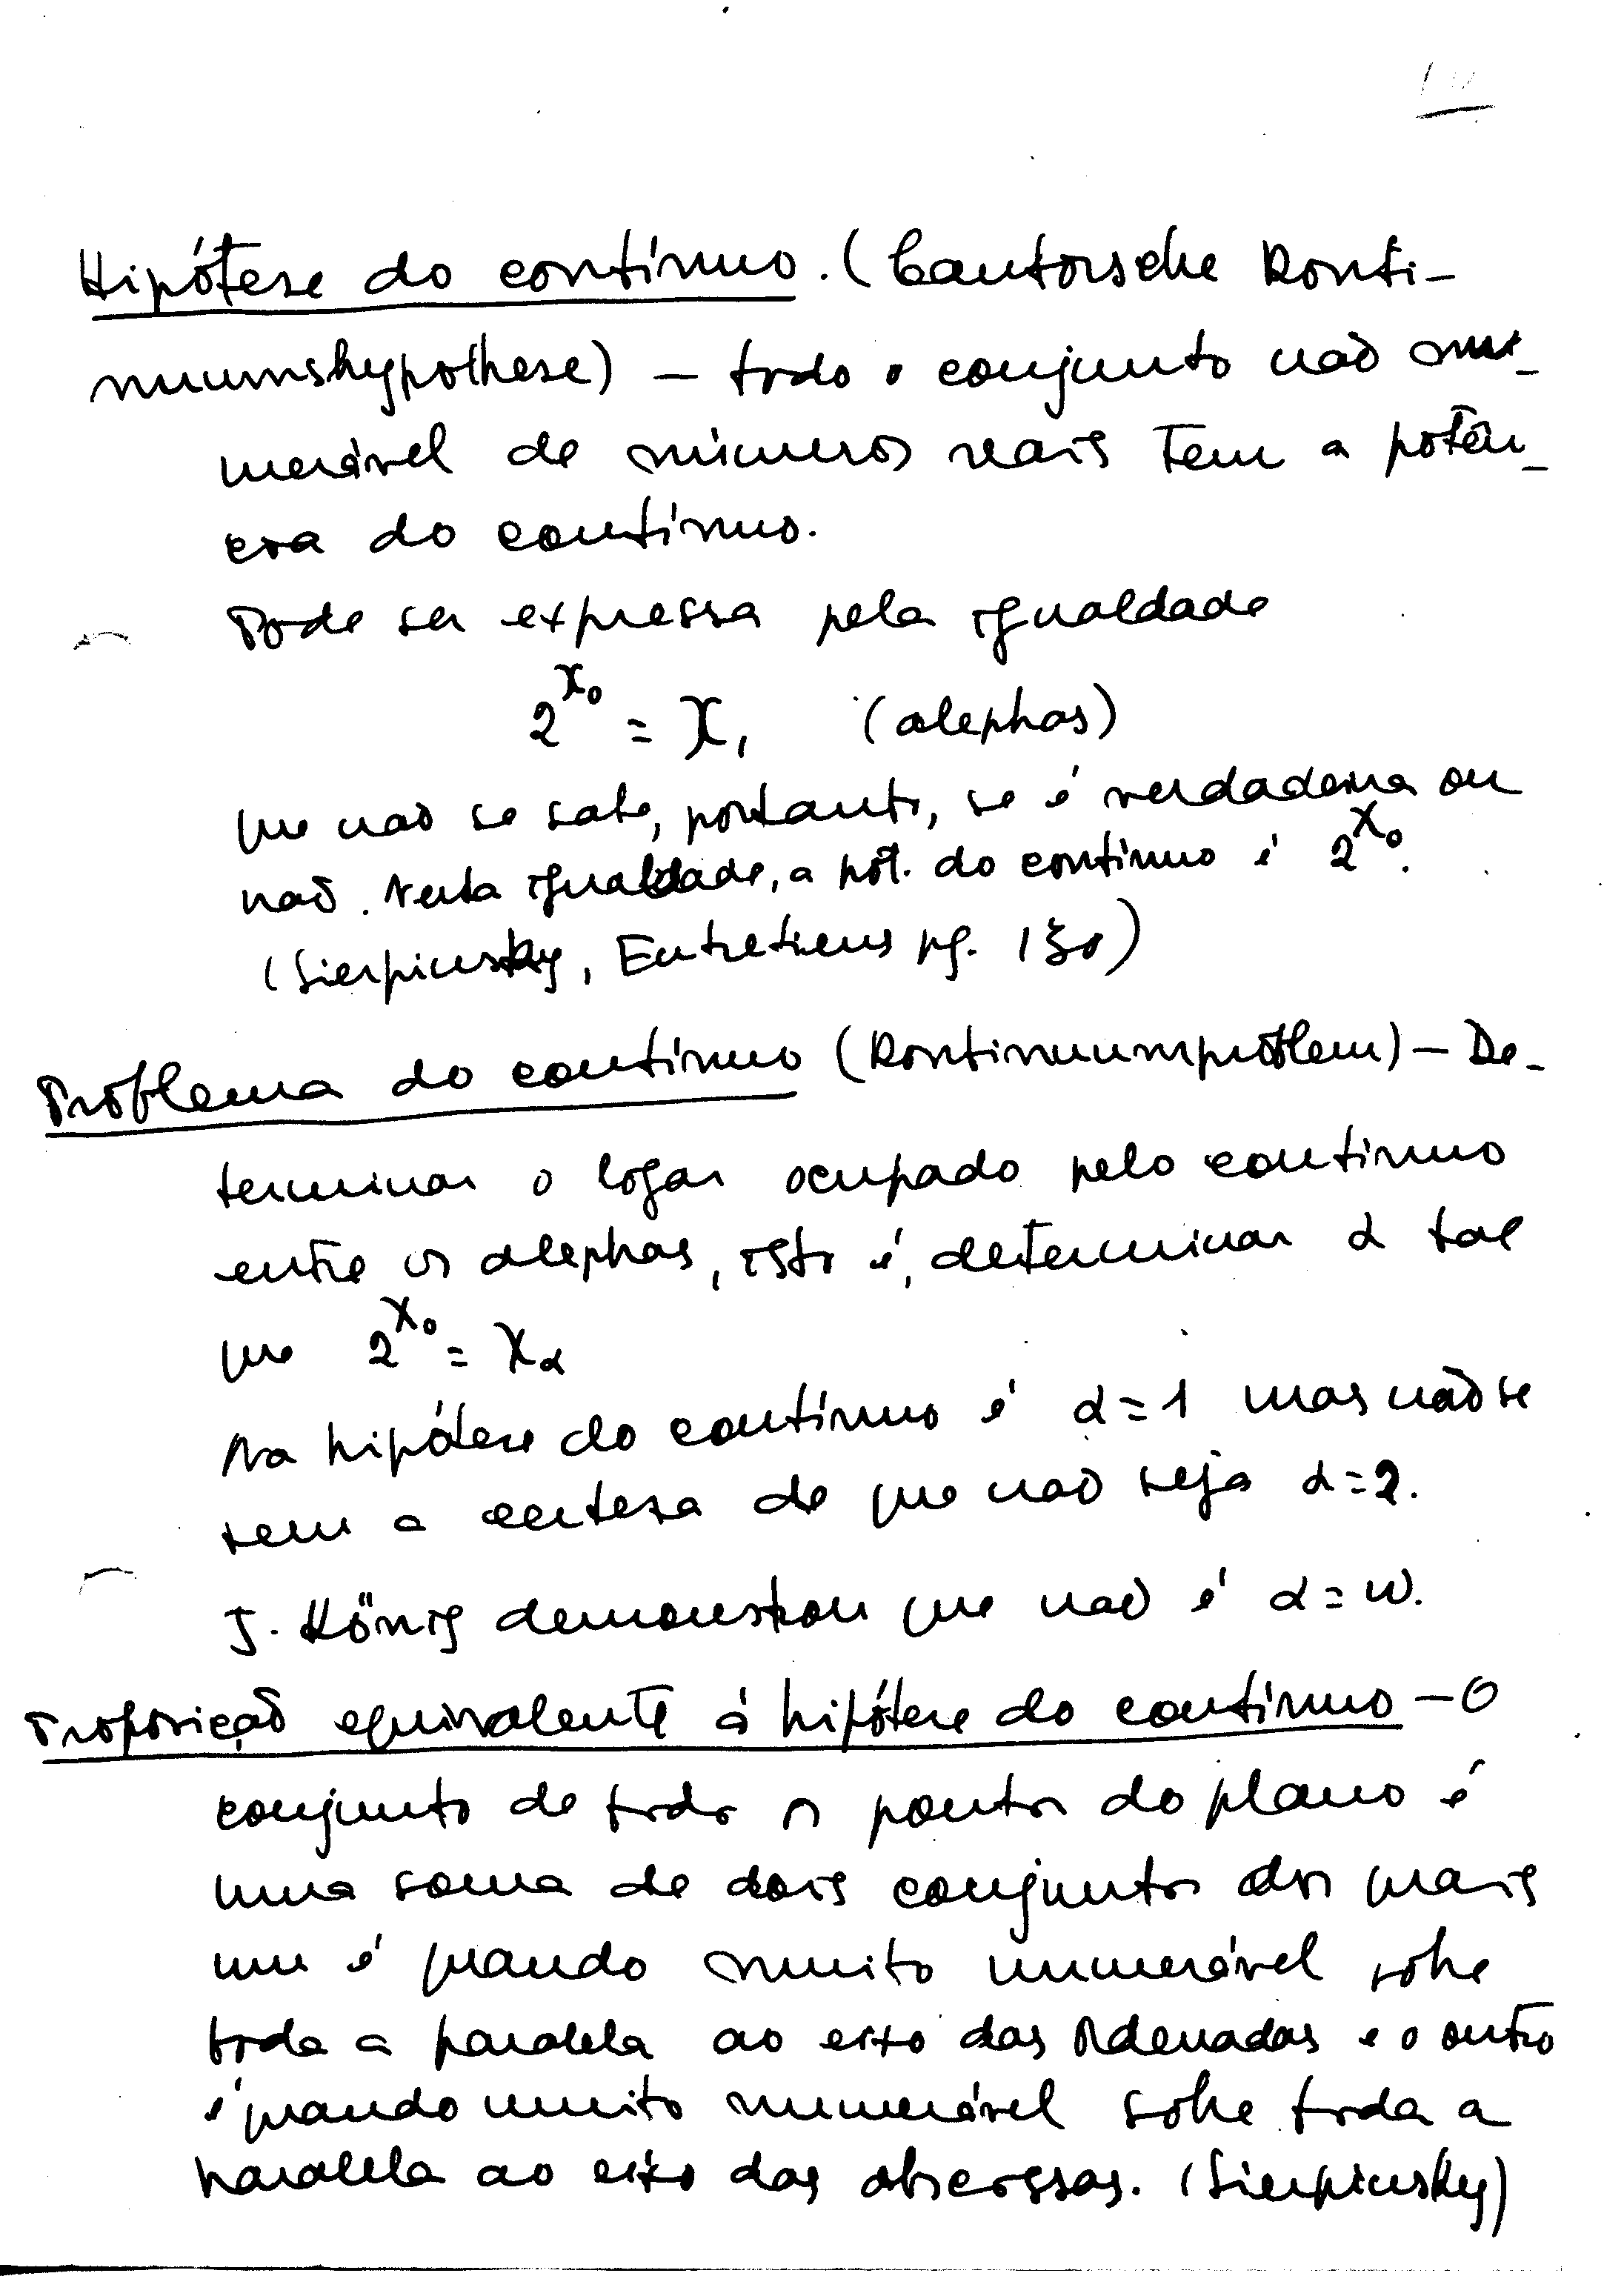 Hipótese do contínuo. (Cantorsche Konti-
nuumshypothese) – todo o conjunto não nu-
merável de números reais tem a potên-
cia do contínuo.
Pode ser expressa pela igualdade
2^ℵ₀ = ℵ₁ (alephas)
que não se sabe, portanto, se é verdadeira ou
não. Nesta igualdade, a pot. do contínuo é 2^ℵ₀.
(Sierpinsky, Entretiens pg. 130)
Problema do contínuo (Kontinuumproblem) – De-
terminar o logar ocupado pelo contínuo
entre os alephas, isto é, determinar α tal
que 2^ℵ₀ = ℵα
Na hipótese do contínuo é α = 1 mas não se
tem a certeza de que não seja α = 2.
J. König demonstrou que não é α = ω.
Proposição equivalente á hipótese do contínuo – O
conjunto de todos os pontos do plano é
uma soma de dois conjuntos dos quais
um é quando muito numerável sobre
toda a paralela ao eixo das ordenadas e o outro
é quando muito numerável sobre toda a
paralela ao eixo das abscissas. (Sierpinsky)